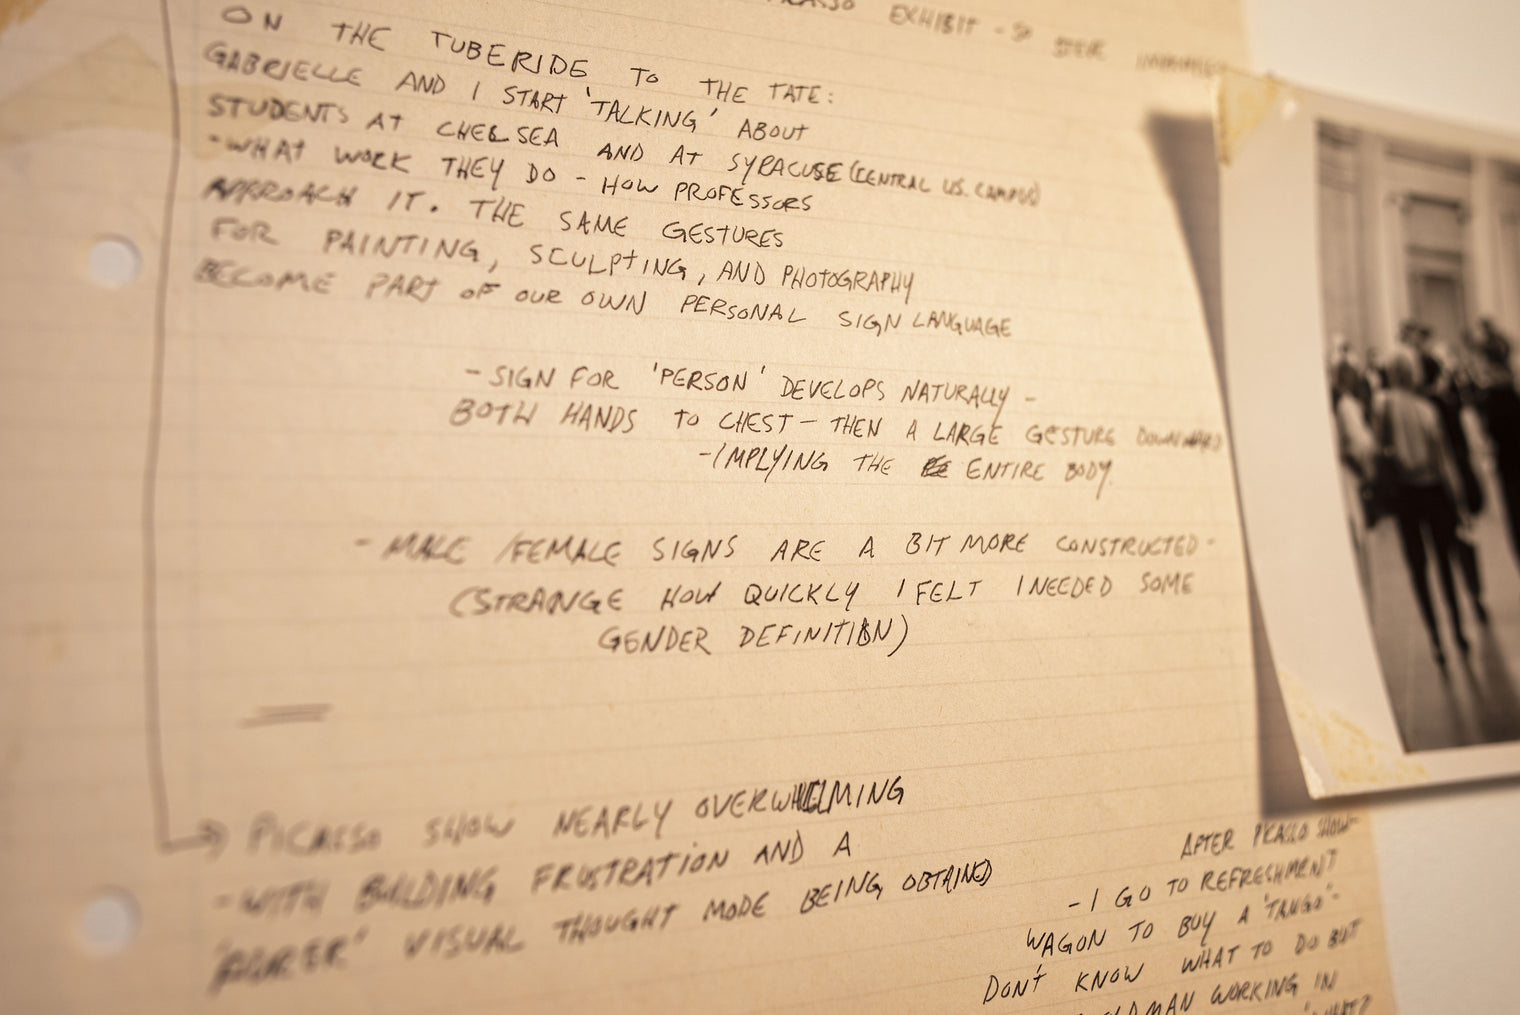 PICASSO EXHIBIT -
ON THE TUBERIDE TO THE TATE:
GABRIELLE AND I START 'TALKING' ABOUT
STUDENTS AT CHELSEA AND AT SYRACUSE (CENTRAL US. CAMPUS)
-WHAT WORK THEY DO - HOW PROFESSORS
APPROACH IT. THE SAME GESTURES
FOR PAINTING, SCULPTING, AND PHOTOGRAPHY
BECOME PART OF OUR OWN PERSONAL SIGN LANGUAGE
-SIGN FOR 'PERSON' DEVELOPS NATURALLY -
BOTH HANDS TO CHEST - THEN A LARGE GESTURE DOWNWARD
-IMPLYING THE ENTIRE BODY.
- MALE /FEMALE SIGNS ARE A BIT MORE CONSTRUCTED -
(STRANGE HOW QUICKLY I FELT I NEEDED SOME
GENDER DEFINITION)
PICASSO SHOW NEARLY OVERWHELMING
-WITH BUILDING FRUSTRATION AND A
VISUAL THOUGHT MODE BEING OBTAINED
AFTER PICASSO SHOW-
- I GO TO REFRESHMENT
WAGON TO BUY A 'TANGO'-
DON'T KNOW WHAT TO DO BUT
MAN WORKING IN
'WHAT?